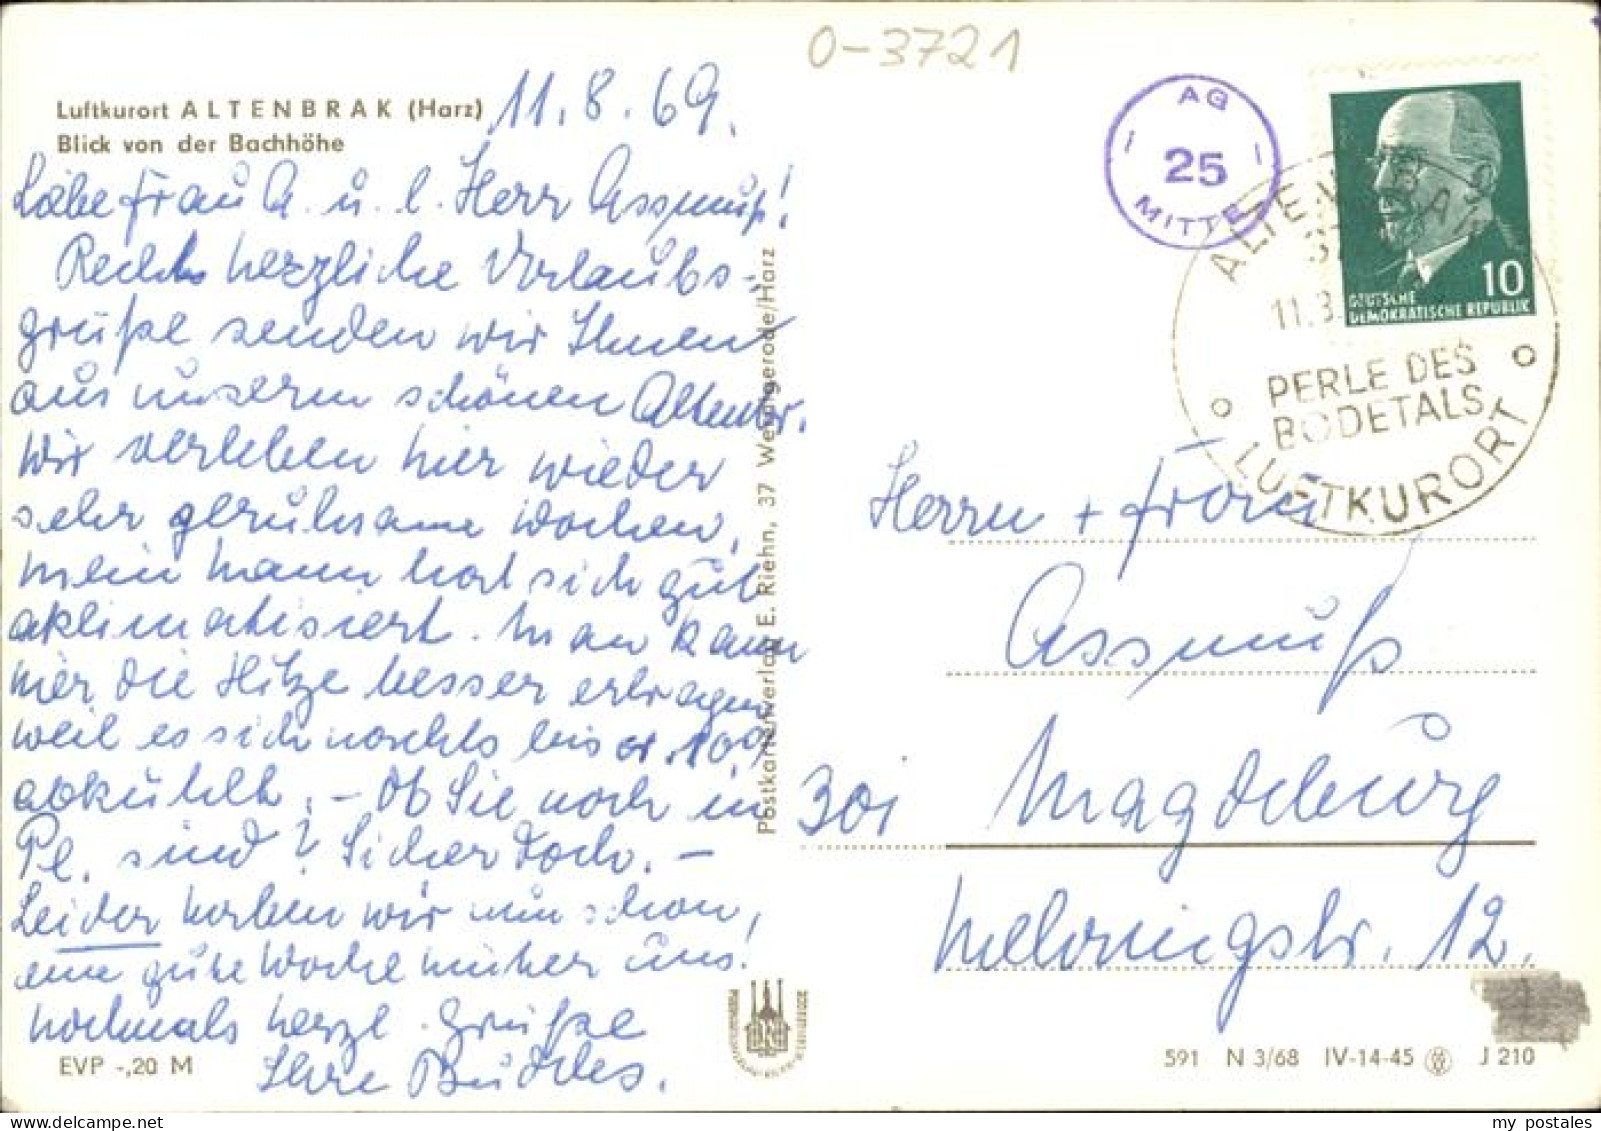 O-3721
Luftkurort ALTENBRAK (Harz)
Blick von der Bachhöhe
11.8.69.
Liebe Frau A. u. l. Herr Assmuß!
Recht herzliche Urlaubs-
grüße senden wir Ihnen
aus unserm schönen Altenbr.
Wir verleben hier wieder
sehr geruhsame Wochen,
mein Mann hat sich gut
aklimatisiert. Man kann
hier die Hitze besser ertragen
weil es sich nachts bis a. 10°
abkühlt. – Ob Sie noch in
Pl. sind? Sicher doch. –
Leider haben wir nun schon,
eine gute Woche hinter uns!
Nochmals herzl. Grüße
Ihre Buddes.
EVP -,20 M
Postkartenverlag E. Riehn, 37 Wernigerode/Harz
AG
25
MITTE
ALTENBRAK
37
11.8.
PERLE DES
BODETALS
LUFTKURORT
10
DEUTSCHE
DEMOKRATISCHE REPUBLIK
Herrn + Frau
Assmuß
301 Magdeburg
Welvringstr. 12.
591 N 3/68 IV-14-45 J 210
my postales